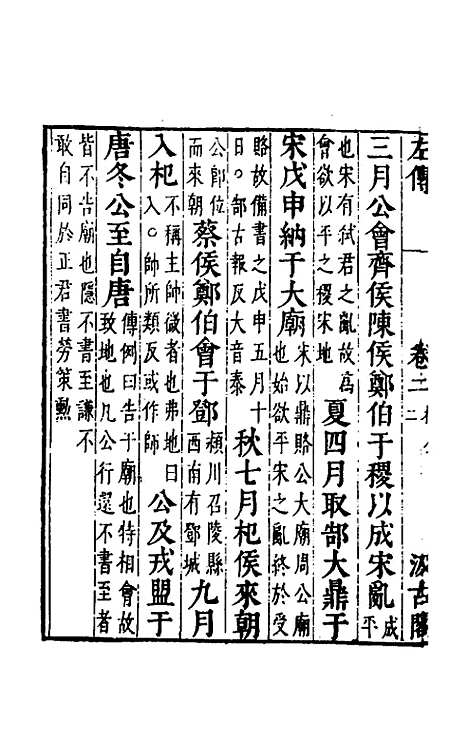 左傳 卷二 二 汲古閣
三月公會齊侯陳侯鄭伯于稷以成宋亂成平
也宋有弒君之亂故爲會欲以平之稷宋地夏四月取郜大鼎于
宋戊申納于大廟宋以鼎賂公大廟周公廟也始欲平宋之亂終於受
賂故備書之戊申五月十日。郜古報反大音泰秋七月杞侯來朝
公即位而來朝蔡侯鄭伯會于鄧潁川召陵縣西南有鄧城九月
入杞不稱主帥微者也弗地曰入。帥所類反或作師公及戎盟于
唐冬公至自唐傳例曰告于廟也特相會故致地也凡公行還不書至者
皆不告廟也隱不書至謙不敢自同於正君書勞策勳